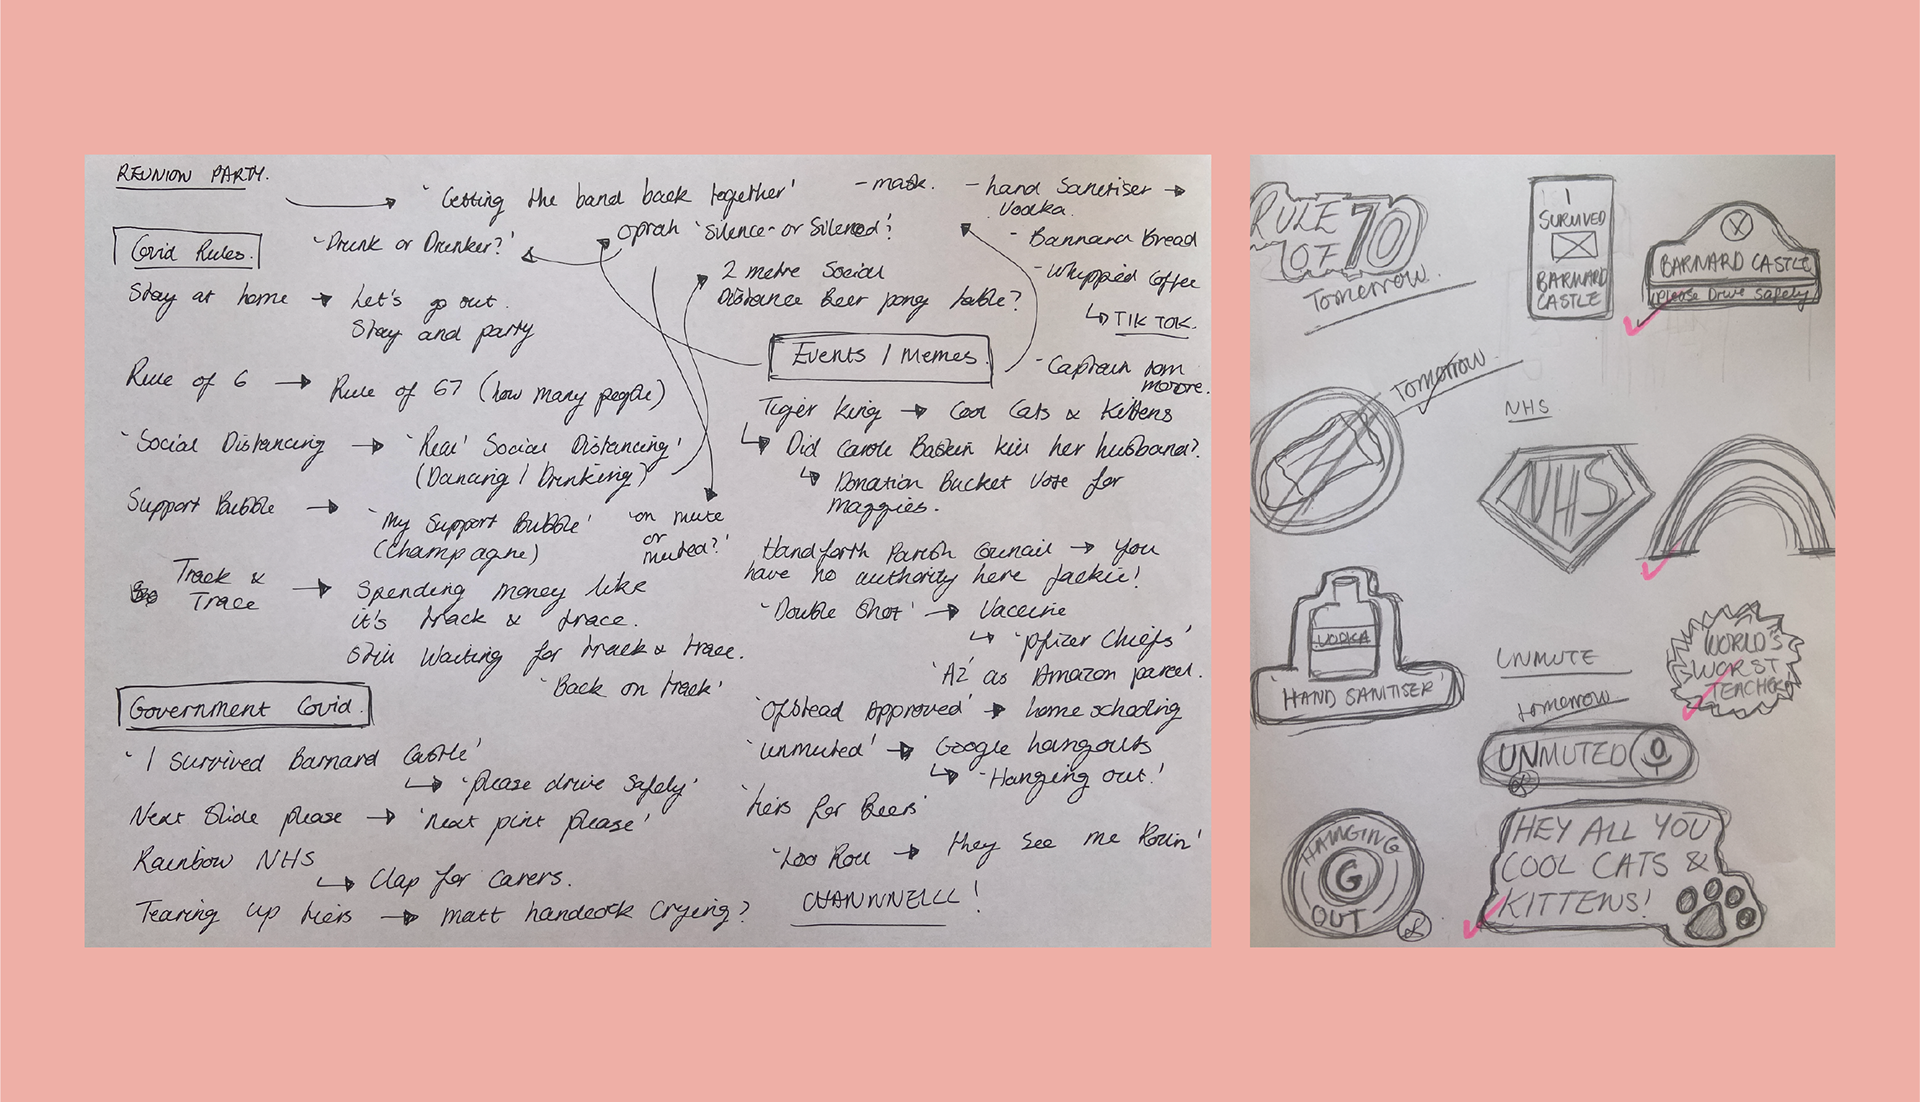 REUNION PARTY.
'Getting the band back together'
- mask.
- hand Sanitiser →
Vodka.
Covid Rules.
'Drunk or Drunker?'
Oprah 'Silence- or Silenced?'
- Bannana Bread
- Whipped Coffee
↳ TIK TOK.
- Captain Tom
moore.
Stay at home → Let's go out.
Stay and party
2 metre Social
Distance Beer pong table?
Rule of 6 → Rule of 67 (how many people)
'Social Distancing → 'Real' Social Distancing'
(Dancing / Drinking)
Support Bubble →
'My Support Bubble'
(Champagne)
'on mute
or
muted?'
Track &
Trace →
Spending money like
it's track & trace.
Still Waiting for track & trace.
'Back on track'
Government Covid.
'I Survived Barnard Castle'
↳ 'please drive safely'
Next Slide please → 'next pint please'
Rainbow NHS
↳ Clap for carers.
Tearing up tiers → Matt handcock Crying?
Events / Memes.
Tiger King → Cool Cats & Kittens
↳ Did Carole Baskin kill her husband?
↳ Donation Bucket Vote for
maggies.
Handforth Parish Council → You
have no authority here Jackie!
'Double Shot' → Vaccine
↳ 'Pfizer Chiefs'
'AZ' as Amazon parcel.
'Ofstead Approved' → home schooling
'unmuted' → Google hangouts
↳ 'Hanging out!'
'tiers for Beers'
'Loo Roll → they See me Rollin'
CHANNNELLL!
RULE
OF 70
Tomorrow.
I
SURVIVED
BARNARD
CASTLE
BARNARD CASTLE
please Drive Safely
Tomorrow.
NHS
NHS
VODKA
'HAND SANITISER'
UNMUTE
tomorrow
WORLD'S
WORST
TEACHER
UNMUTED
HANGING
G
OUT
HEY ALL YOU
COOL CATS &
KITTENS!